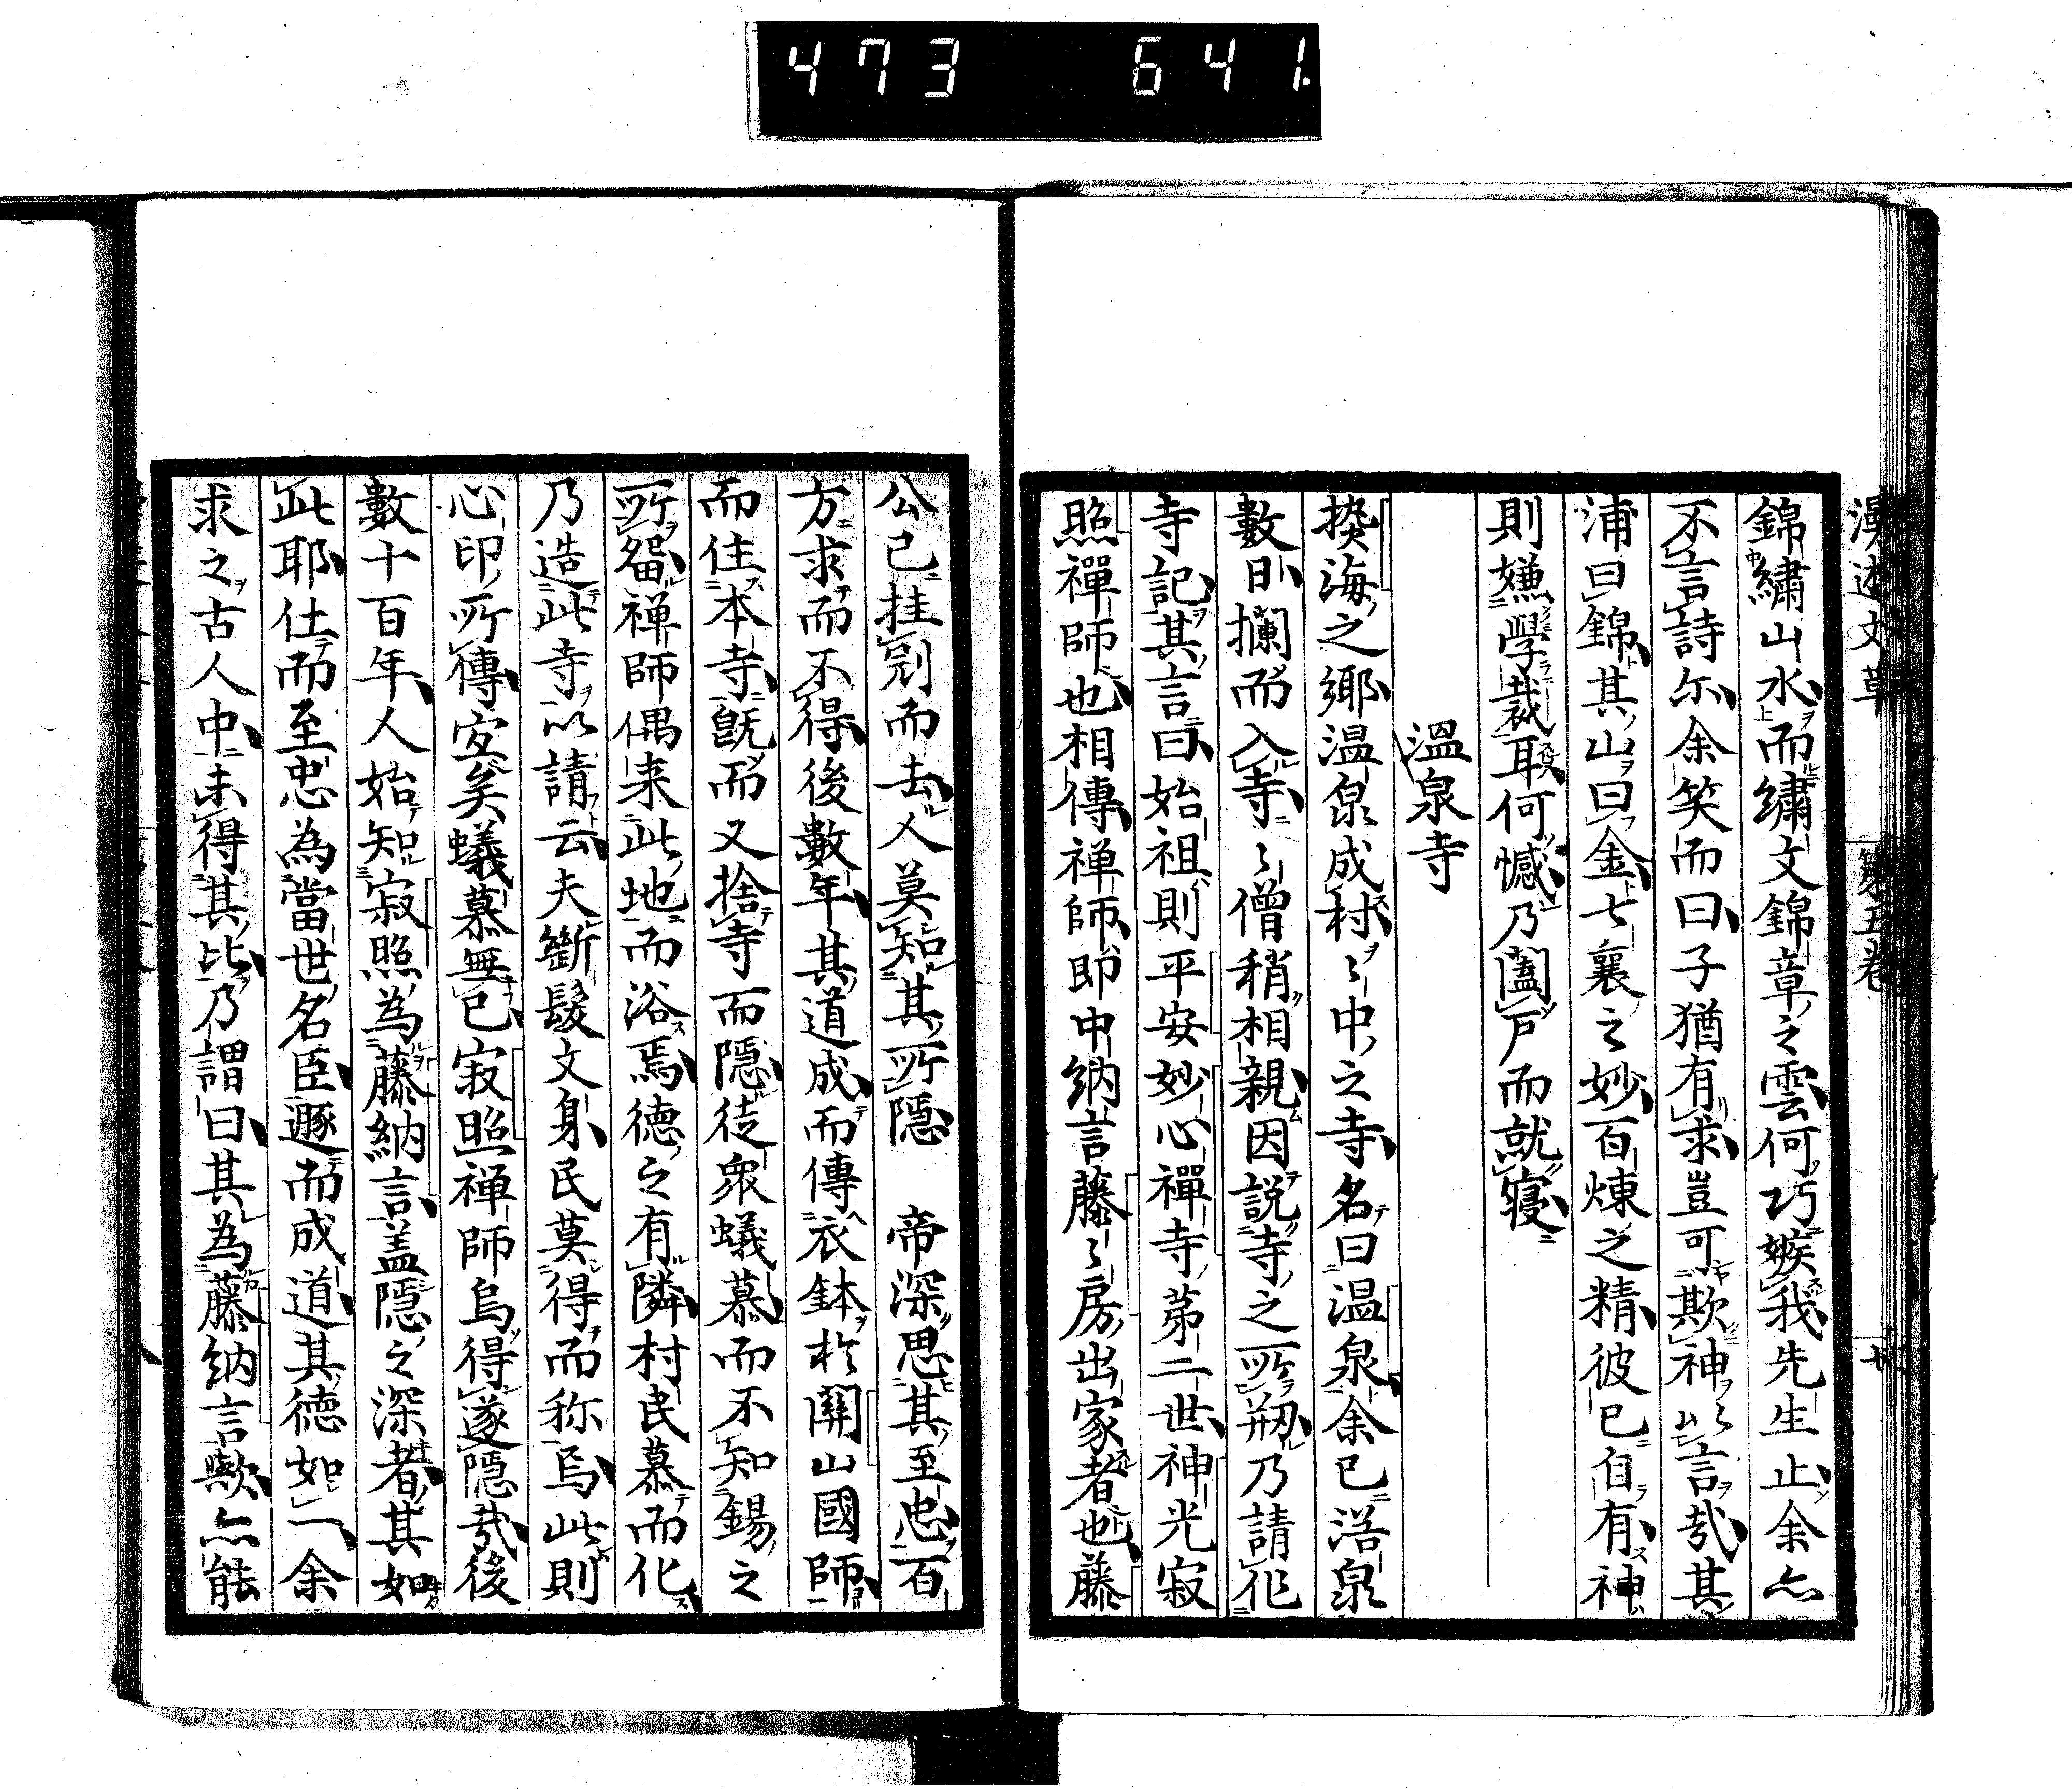 473 641.
漫遊文草 第五卷
錦繡山水而繡文錦章之雲何巧嫉我先生止余亦
不言詩尓余笑而曰子猶有求豈可欺神以言哉其
浦曰錦其山曰金七襄之妙百煉之精彼已自有神
則嫌學裁耳何憾乃闔戶而就寢
溫泉寺
揬海之鄉溫泉成村々中之寺名曰溫泉余已浴泉
數日攔而入寺々僧稍相親因說寺之所剏乃請作
寺記其言曰始祖則平安妙心禪寺第二世神光寂
照禪師也相傳禅師即中納言藤々房出家者也藤
公已挂冠而去人莫知其所隱 帝深思其至忠百
方求而不得後數年其道成而傳衣鉢於關山國師
而住本寺既而又捨寺而隱徒衆蟻慕而不知錫之
所畱禅師偶来此地而浴焉德之有隣村民慕而化
乃造此寺以請云夫斷髮文身民莫得而称焉此則
心印所傳安矣蟻慕無已寂照禅師烏得遂隱哉後
數十百年人始知寂照為藤納言盖隱之深者其如
此耶仕而至忠為當世名臣遯而成道其德如一余
求之古人中未得其比乃謂曰其為藤納言歟亦能